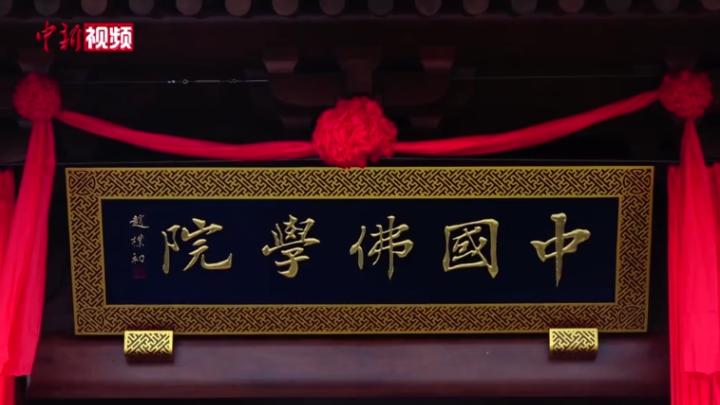 中新视频
中國佛學院
趙樸初